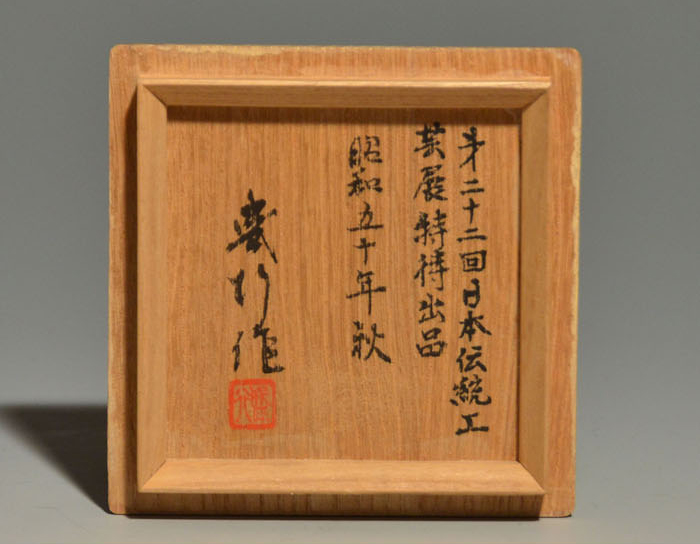 第二十二回日本伝統工
芸展特待出品
昭和五十年秋
作